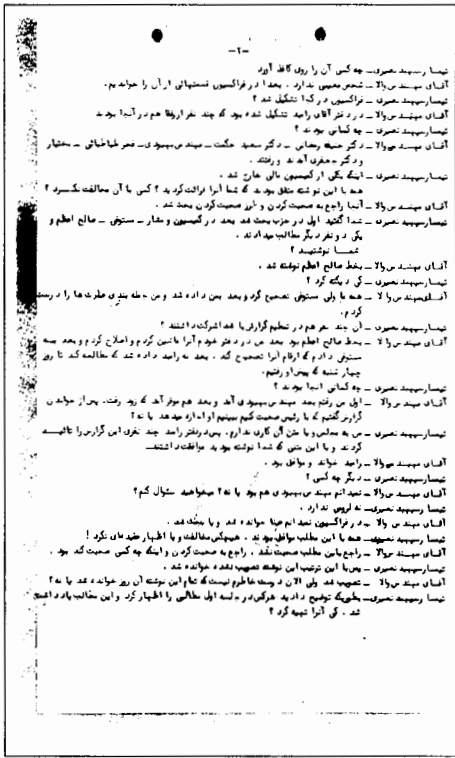 -۲-
تیمسار سپهبد نصیری ـ چه کسی آن را روی کاغذ آورد
آقای مهندس والا ـ شخص معینی ندارد . بعدا در فراکسیون قسمتهائی از آن را خواندیم .
تیمسار سپهبد نصیری ـ فراکسیون در کجا تشکیل شد ؟
آقای مهندس والا ـ در دفتر آقای رامبد تشکیل شده بود که چند نفر از رفقا هم در آنجا بودند
تیمسار سپهبد نصیری ـ چه کسانی بودند ؟
آقای مهندس والا ـ دکتر رضائی ـ دکتر سعید حکمت ـ مهندس سپهبدی ـ فخر طباطبائی ـ بختیار
و دکتر جعفری آمدند و رفتند .
تیمسار سپهبد نصیری ـ اینکه یکی از کمیسیون مالی خارج شد .
همه با این نوشته متفق بودند که شما آنرا قرائت کردید ؟ کسی با آن مخالفت نکرد ؟
آقای مهندس والا ـ آنجا راجع به صحبت کردن و طرز صحبت کردن بحث شد .
تیمسار سپهبد نصیری ـ شما گفتید اول در حزب بحث شد بعد در کمیسیون و مستوفی ـ صالح اعظم و
یکی دو نفر دیگر مطالب میدادند .
شما نوشتید ؟
آقای مهندس والا ـ بخط صالح اعظم نوشته شد .
تیمسار سپهبد نصیری ـ کی دیکته کرد ؟
آقای مهندس والا ـ همه با ولی مستوفی تصحیح کرد و بعد بمن داده شد و من جمله بندی عبارت ها را درست
کردم .
تیمسار سپهبد نصیری ـ آن چند نفر هم در تنظیم گزارش با شما شرکت داشتند ؟
آقای مهندس والا ـ بخط صالح اعظم بود بعد من در دفتر خودم آنرا ماشین کردم و اصلاح کردم و بعد به
مستوفی دادم که ارقام آنرا تصحیح کند . بعد به رامبد داده شد که مطالعه کند تا روز
چهارشنبه که پیش او رفتیم .
تیمسار سپهبد نصیری ـ چه کسانی آنجا بودند ؟
آقای مهندس والا ـ اول من رفتم بعد مهندس سپهبدی آمد و بعد هم موقر آمد که زود رفت . پس از خواندن
گزارش گفتیم که با رئیس صحبت کنیم ببینیم او اجازه میدهد یا نه ؟
تیمسار سپهبد نصیری ـ من به مجلس و با متن آن کاری ندارم . پس در دفتر رامبد چند نفری این گزارش را تائید
کردند و با این متنی که شما نوشته بودید موافقت داشتند .
آقای مهندس والا ـ رامبد خواند و موافق بود .
تیمسار سپهبد نصیری ـ دیگر چه کسی ؟
آقای مهندس والا ـ نمیدانم مهندس سپهبدی هم بود یا نه ؟ میخواهید سئوال کنم ؟
تیمسار سپهبد نصیری ـ نه لزومی ندارد .
آقای مهندس والا ـ در فراکسیون نمیدانم عینا خوانده شد و یا بحث شد .
تیمسار سپهبد نصیری ـ همه با این مطلب موافق بودند . هیچکس مخالفت و یا اظهار عقیده ای نکرد !
آقای مهندس والا ـ راجع باین مطلب صحبت نشد . راجع به صحبت کردن و اینکه چه کسی صحبت کند بود .
تیمسار سپهبد نصیری ـ پس با این ترتیب این نوشته تصویب نشده خوانده شد .
آقای مهندس والا ـ تصویب شد ولی الان درست خاطرم نیست که تمام این نوشته آن روز خوانده شد یا نه ؟
تیمسار سپهبد نصیری ـ بطوریکه توضیح دادید هرکس در جلسه اول مطالبی را اظهار کرد و این مطالب یادداشت
شد . کی آنرا تهیه کرد ؟